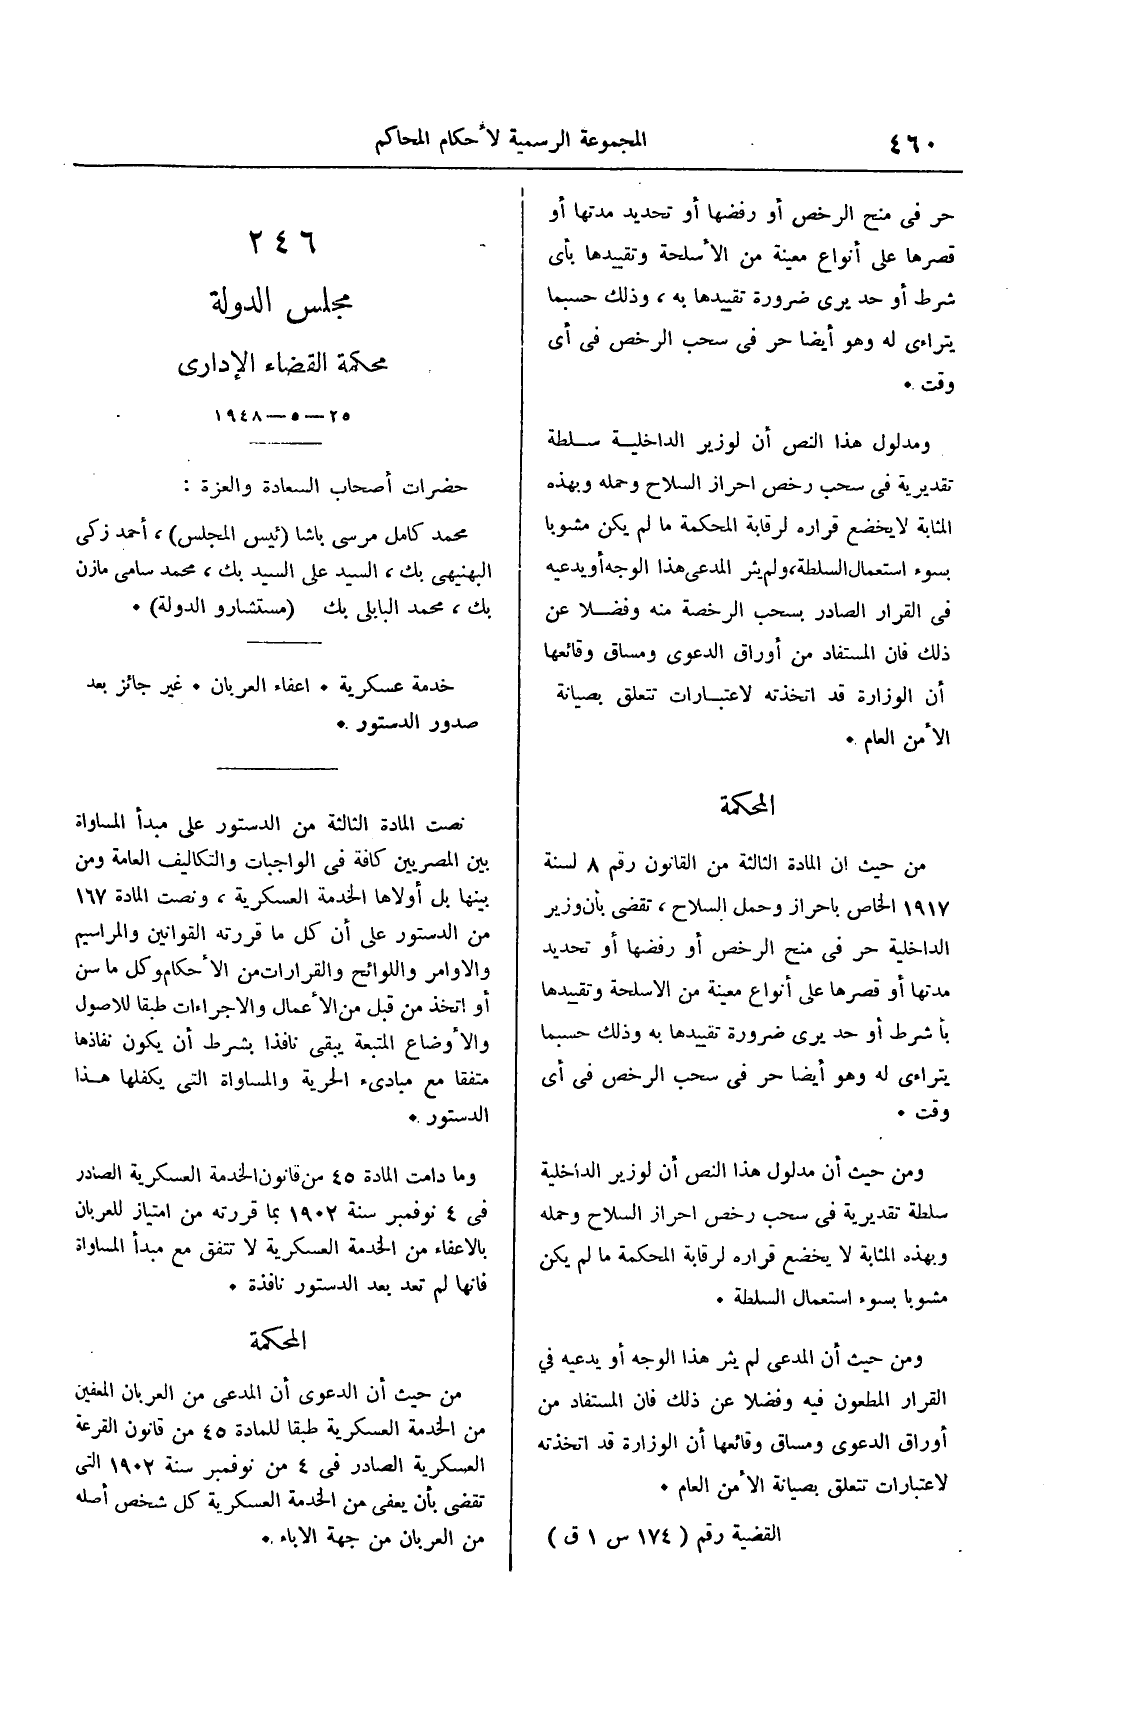 ٤٦٠
المجموعة الرسمية لأحكام المحاكم
حر فى منح الرخص أو رفضها أو تحديد مدتها أو
قصرها على أنواع معينة من الأسلحة وتقييدها بأى
شرط أو حد يرى ضرورة تقييدها به ، وذلك حسبما
يتراءى له وهو أيضا حر فى سحب الرخص فى أى
وقت .
ومدلول هذا النص أن لوزير الداخلية سلطة
تقديرية فى سحب رخص احراز السلاح وحمله وبهذه
المثابة لايخضع قراره لرقابة المحكمة ما لم يكن مشوبا
بسوء استعمال السلطة، ولم يثر المدعى هذا الوجه أو يدعيه
فى القرار الصادر بسحب الرخصة منه وفضلا عن
ذلك فان المستفاد من أوراق الدعوى ومساق وقائعها
أن الوزارة قد اتخذته لاعتبارات تتعلق بصيانة
الأمن العام .
المحكمة
من حيث ان المادة الثالثة من القانون رقم ٨ لسنة
١٩١٧ الخاص باحراز وحمل السلاح ، تقضى بأن وزير
الداخلية حر فى منح الرخص أو رفضها أو تحديد
مدتها أو قصرها على أنواع معينة من الاسلحة وتقييدها
بأ شرط أو حد يرى ضرورة تقييدها به وذلك حسبما
يتراءى له وهو أيضا حر فى سحب الرخص فى أى
وقت .
ومن حيث أن مدلول هذا النص أن لوزير الداخلية
سلطة تقديرية فى سحب رخص احراز السلاح وحمله
وبهذه المثابة لا يخضع قراره لرقابة المحكمة ما لم يكن
مشوبا بسوء استعمال السلطة .
ومن حيث أن المدعى لم يثر هذا الوجه أو يدعيه في
القرار المطعون فيه وفضلا عن ذلك فان المستفاد من
أوراق الدعوى ومساق وقائعها أن الوزارة قد اتخذته
لاعتبارات تتعلق بصيانة الأمن العام .
القضية رقم ( ١٧٤ س ١ ق )
٢٤٦
مجلس الدولة
محكمة القضاء الإدارى
٢٥—٥—١٩٤٨
حضرات أصحاب السعادة والعزة :
محمد كامل مرسى باشا (ئيس المجلس) ، أحمد زكى
البهنيهى بك ، السيد على السيد بك ، محمد سامى مازن
بك ، محمد البابلى بك (مستشارو الدولة) .
خدمة عسكرية . اعفاء العربان . غير جائز بعد
صدور الدستور .
نصت المادة الثالثة من الدستور على مبدأ المساواة
بين المصريين كافة فى الواجبات والتكاليف العامة ومن
بينها بل أولاها الخدمة العسكرية ، ونصت المادة ١٦٧
من الدستور على أن كل ما قررته القوانين والمراسيم
والاوامر واللوائح والقرارات من الأحكام وكل ما سن
أو اتخذ من قبل من الأعمال والاجراءات طبقا للاصول
والأوضاع المتبعة يبقى نافذا بشرط أن يكون نفاذها
متفقا مع مبادىء الحرية والمساواة التى يكفلها هذا
الدستور .
وما دامت المادة ٤٥ من قانون الخدمة العسكرية الصادر
فى ٤ نوفمبر سنة ١٩٠٢ بما قررته من امتياز للعربان
بالاعفاء من الخدمة العسكرية لا تتفق مع مبدأ المساواة
فانها لم تعد بعد الدستور نافذة .
المحكمة
من حيث أن الدعوى أن المدعى من العربان المعفين
من الخدمة العسكرية طبقا للمادة ٤٥ من قانون القرعة
العسكرية الصادر فى ٤ من نوفمبر سنة ١٩٠٢ التى
تقضى بأن يعفى من الخدمة العسكرية كل شخص أصله
من العربان من جهة الاباء .